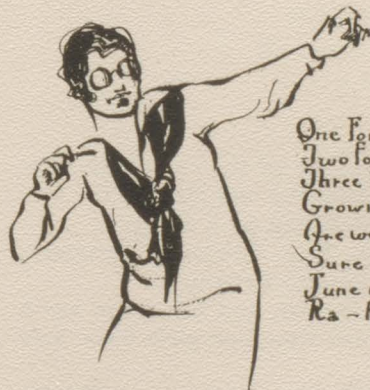 One Fo
Two fo
Three
Grow
Are w
Sure
June
Ra -